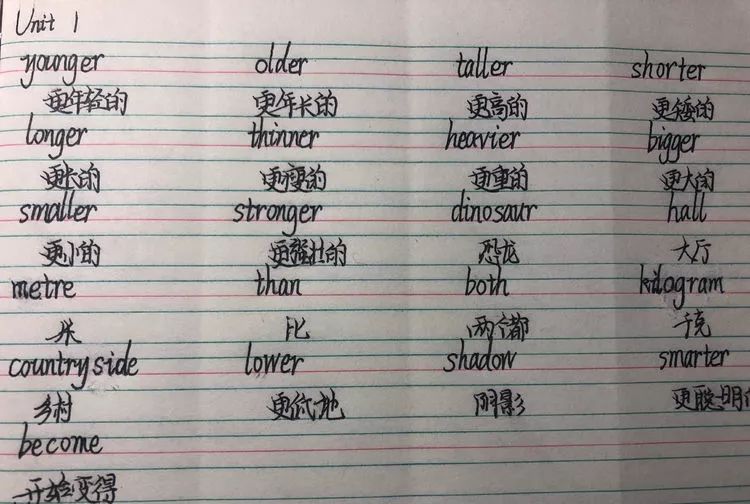 Unit 1
younger older taller shorter
更年轻的 更年长的 更高的 更矮的
longer thinner heavier bigger
更长的 更瘦的 更重的 更大的
smaller stronger dinosaur hall
更小的 更强壮的 恐龙 大厅
metre than both kilogram
米 比 两个都 千克
countryside lower shadow smarter
乡村 更低地 阴影 更聪明的
become
开始变得